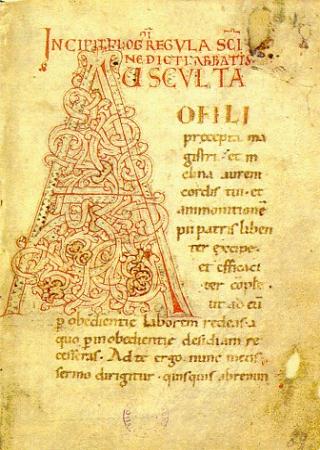 INCIPIT PLOG REGULA SCI
NEDICTI ABBATIS
AUSCULTA
O FILI
precepta ma
gistri · et in
clina aurem
cordis tui · et
ammonitionē
pii patris liben
ter excipe ·
et efficaci
ter cōple ·
ut ad eū
p obedientie laborem redeas · a
quo p inobedientie desidiam re
cesseras · Ad te ergo nunc meus
sermo dirigitur · quisquis abrenun